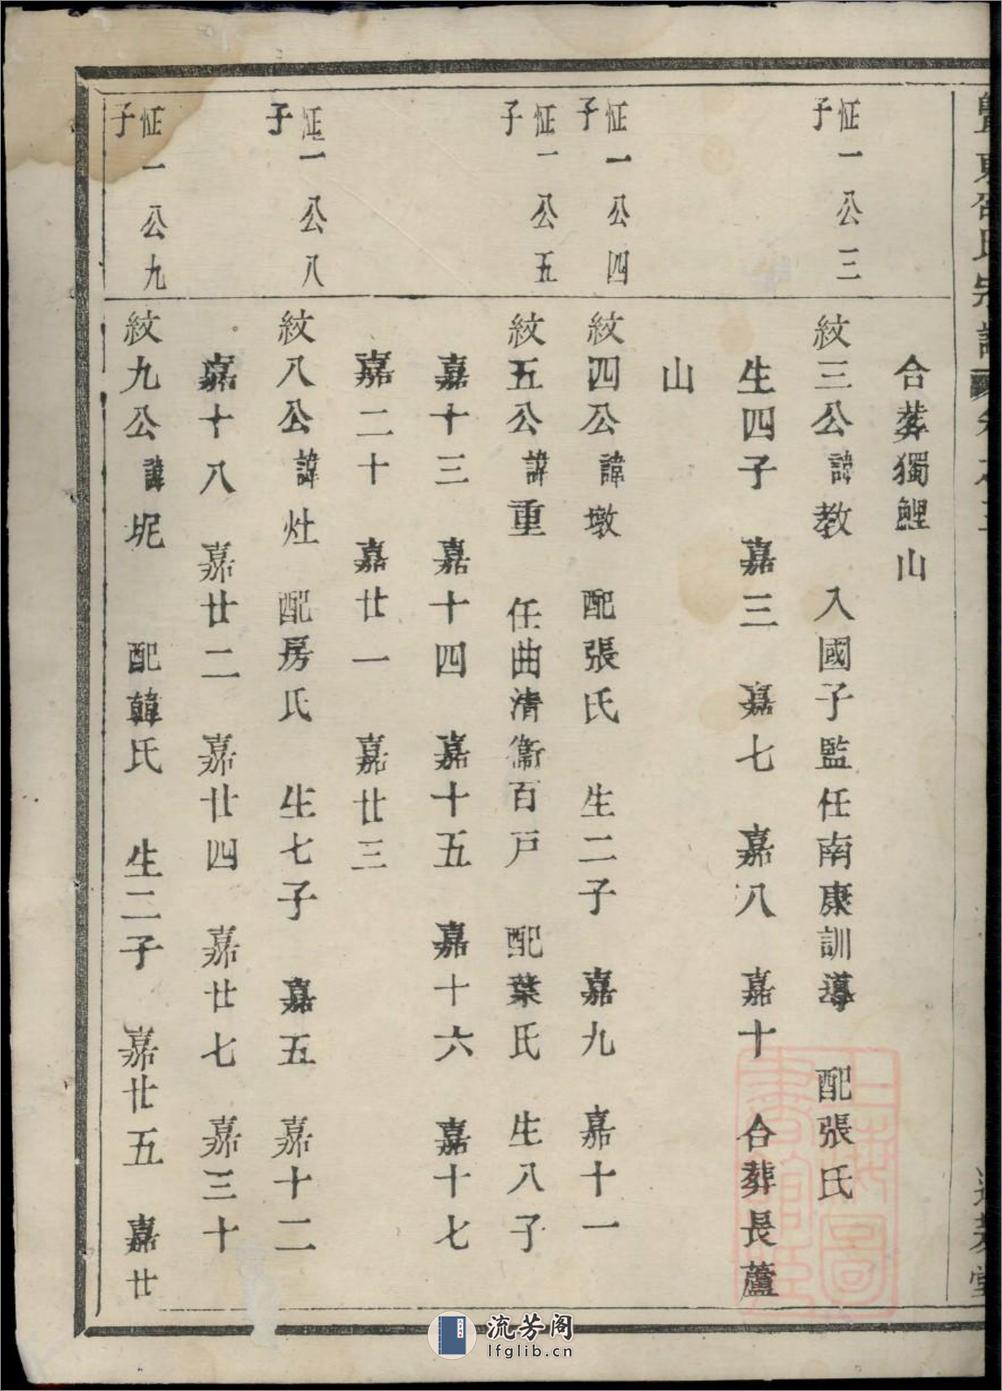 合葬獨鯉山
怔一公三
子
紋三公諱教 入國子監任南康訓導 配張氏
生四子 嘉三 嘉七 嘉八 嘉十 合葬長蘆
山
怔一公四
子
紋四公諱墩 配張氏 生二子 嘉九 嘉十一
怔一公五
子
紋五公諱重 任曲清衞百戶 配葉氏 生八子
嘉十三 嘉十四 嘉十五 嘉十六 嘉十七
嘉二十 嘉廿一 嘉廿三
怔一公八
子
紋八公諱灶 配房氏 生七子 嘉五 嘉十二
嘉十八 嘉廿二 嘉廿四 嘉廿七 嘉三十
怔一公九
子
紋九公諱坭 配韓氏 生二子 嘉廿五 嘉廿
流芳阁
lfglib.cn